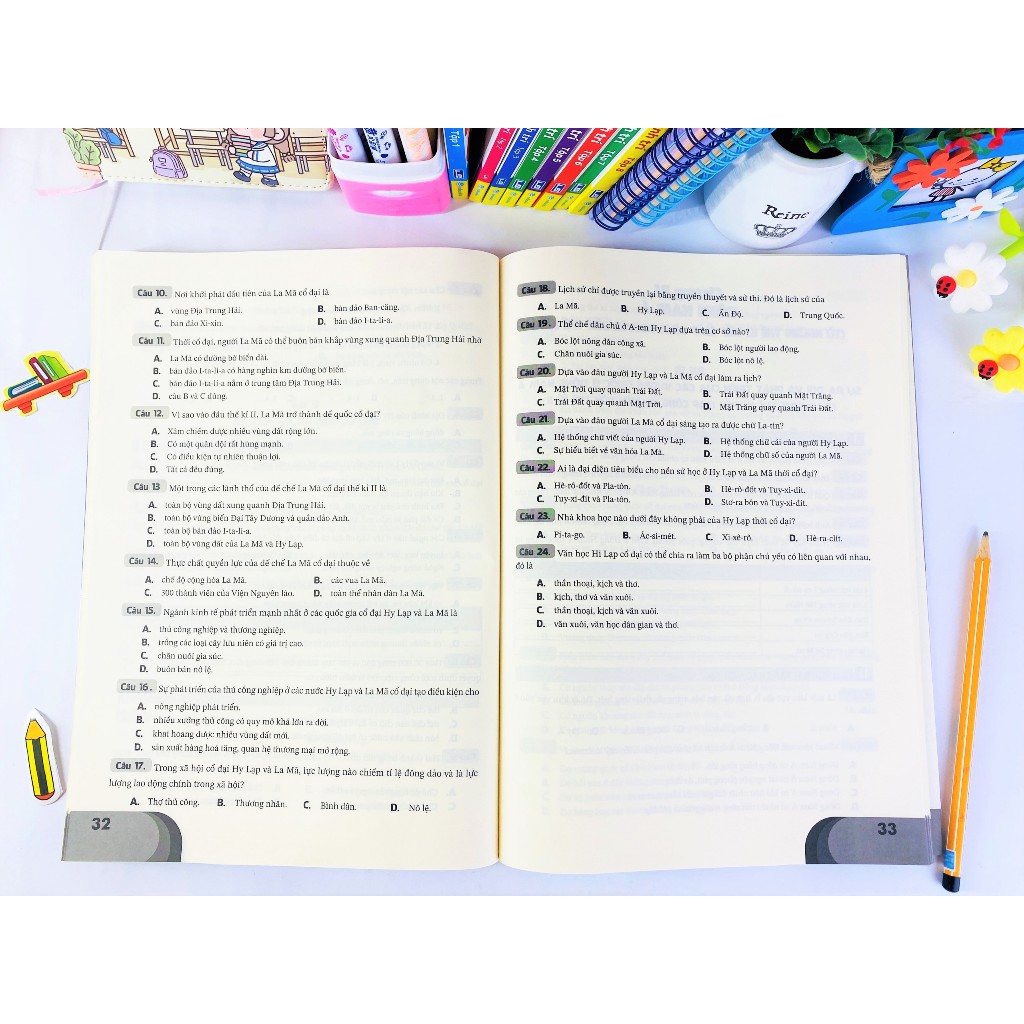 Tập 1
Tập 3
Tập 4
Tập 5
Tập 6
Tập 7
Tập 8
Reine
Câu 10. Nơi khởi phát đầu tiên của La Mã cổ đại là
A. vùng Địa Trung Hải. B. bán đảo Ban-căng.
C. bán đảo Xi-xin. D. bán đảo I-ta-li-a.
Câu 11. Thời cổ đại, người La Mã có thể buôn bán khắp vùng xung quanh Địa Trung Hải nhờ
A. La Mã có đường bờ biển dài.
B. bán đảo I-ta-li-a có hàng nghìn km đường bờ biển.
C. bán đảo I-ta-li-a nằm ở trung tâm Địa Trung Hải.
D. câu B và C đúng.
Câu 12. Vì sao vào đầu thế kỉ II, La Mã trở thành đế quốc cổ đại?
A. Xâm chiếm được nhiều vùng đất rộng lớn.
B. Có một quân đội rất hùng mạnh.
C. Có điều kiện tự nhiên thuận lợi.
D. Tất cả đều đúng.
Câu 13 Một trong các lãnh thổ của đế chế La Mã cổ đại thế kỉ II là
A. toàn bộ vùng đất xung quanh Địa Trung Hải.
B. toàn bộ vùng biển Đại Tây Dương và quần đảo Anh.
C. toàn bộ bán đảo I-ta-li-a.
D. toàn bộ vùng đất của La Mã và Hy Lạp.
Câu 14. Thực chất quyền lực của đế chế La Mã cổ đại thuộc về
A. chế độ cộng hòa La Mã. B. các vua La Mã.
C. 300 thành viên của Viện Nguyên lão. D. toàn thể nhân dân La Mã.
Câu 15. Ngành kinh tế phát triển mạnh nhất ở các quốc gia cổ đại Hy Lạp và La Mã là
A. thủ công nghiệp và thương nghiệp.
B. trồng các loại cây lưu niên có giá trị cao.
C. chăn nuôi gia súc.
D. buôn bán nô lệ.
Câu 16. Sự phát triển của thủ công nghiệp ở các nước Hy Lạp và La Mã cổ đại tạo điều kiện cho
A. nông nghiệp phát triển.
B. nhiều xưởng thủ công có quy mô khá lớn ra đời.
C. khai hoang được nhiều vùng đất mới.
D. sản xuất hàng hoá tăng, quan hệ thương mại mở rộng.
Câu 17. Trong xã hội cổ đại Hy Lạp và La Mã, lực lượng nào chiếm tỉ lệ đông đảo và là lực
lượng lao động chính trong xã hội?
A. Thợ thủ công. B. Thương nhân. C. Bình dân. D. Nô lệ.
32
Câu 18. Lịch sử chỉ được truyền lại bằng truyền thuyết và sử thi. Đó là lịch sử của
A. La Mã. B. Hy Lạp. C. Ấn Độ. D. Trung Quốc.
Câu 19. Thể chế dân chủ ở A-ten Hy Lạp dựa trên cơ sở nào?
A. Bóc lột nông dân công xã. B. Bóc lột người lao động.
C. Chăn nuôi gia súc. D. Bóc lột nô lệ.
Câu 20. Dựa vào đâu người Hy Lạp và La Mã cổ đại làm ra lịch?
A. Mặt Trời quay quanh Trái Đất. B. Trái Đất quay quanh Mặt Trăng.
C. Trái Đất quay quanh Mặt Trời. D. Mặt Trăng quay quanh Trái Đất.
Câu 21. Dựa vào đâu người La Mã cổ đại sáng tạo ra được chữ La-tin?
A. Hệ thống chữ viết của người Hy Lạp. B. Hệ thống chữ cái của người Hy Lạp.
C. Sự hiểu biết về văn hóa La Mã. D. Hệ thống chữ số của người La Mã.
Câu 22. Ai là đại diện tiêu biểu cho nền sử học ở Hy Lạp và La Mã thời cổ đại?
A. Hê-rô-đốt và Pla-tôn. B. Hê-rô-đốt và Tuy-xi-đít.
C. Tuy-xi-đít và Pla-tôn. D. Stơ-ra-bôn và Tuy-xi-đít.
Câu 23. Nhà khoa học nào dưới đây không phải của Hy Lạp thời cổ đại?
A. Pi-ta-go. B. Ác-si-mét. C. Xi-xê-rô. D. Hê-ra-clít.
Câu 24. Văn học Hi Lạp cổ đại có thể chia ra làm ba bộ phận chủ yếu có liên quan với nhau,
đó là
A. thần thoại, kịch và thơ.
B. kịch, thơ và văn xuôi.
C. thần thoại, kịch và văn xuôi.
D. văn xuôi, văn học dân gian và thơ.
33